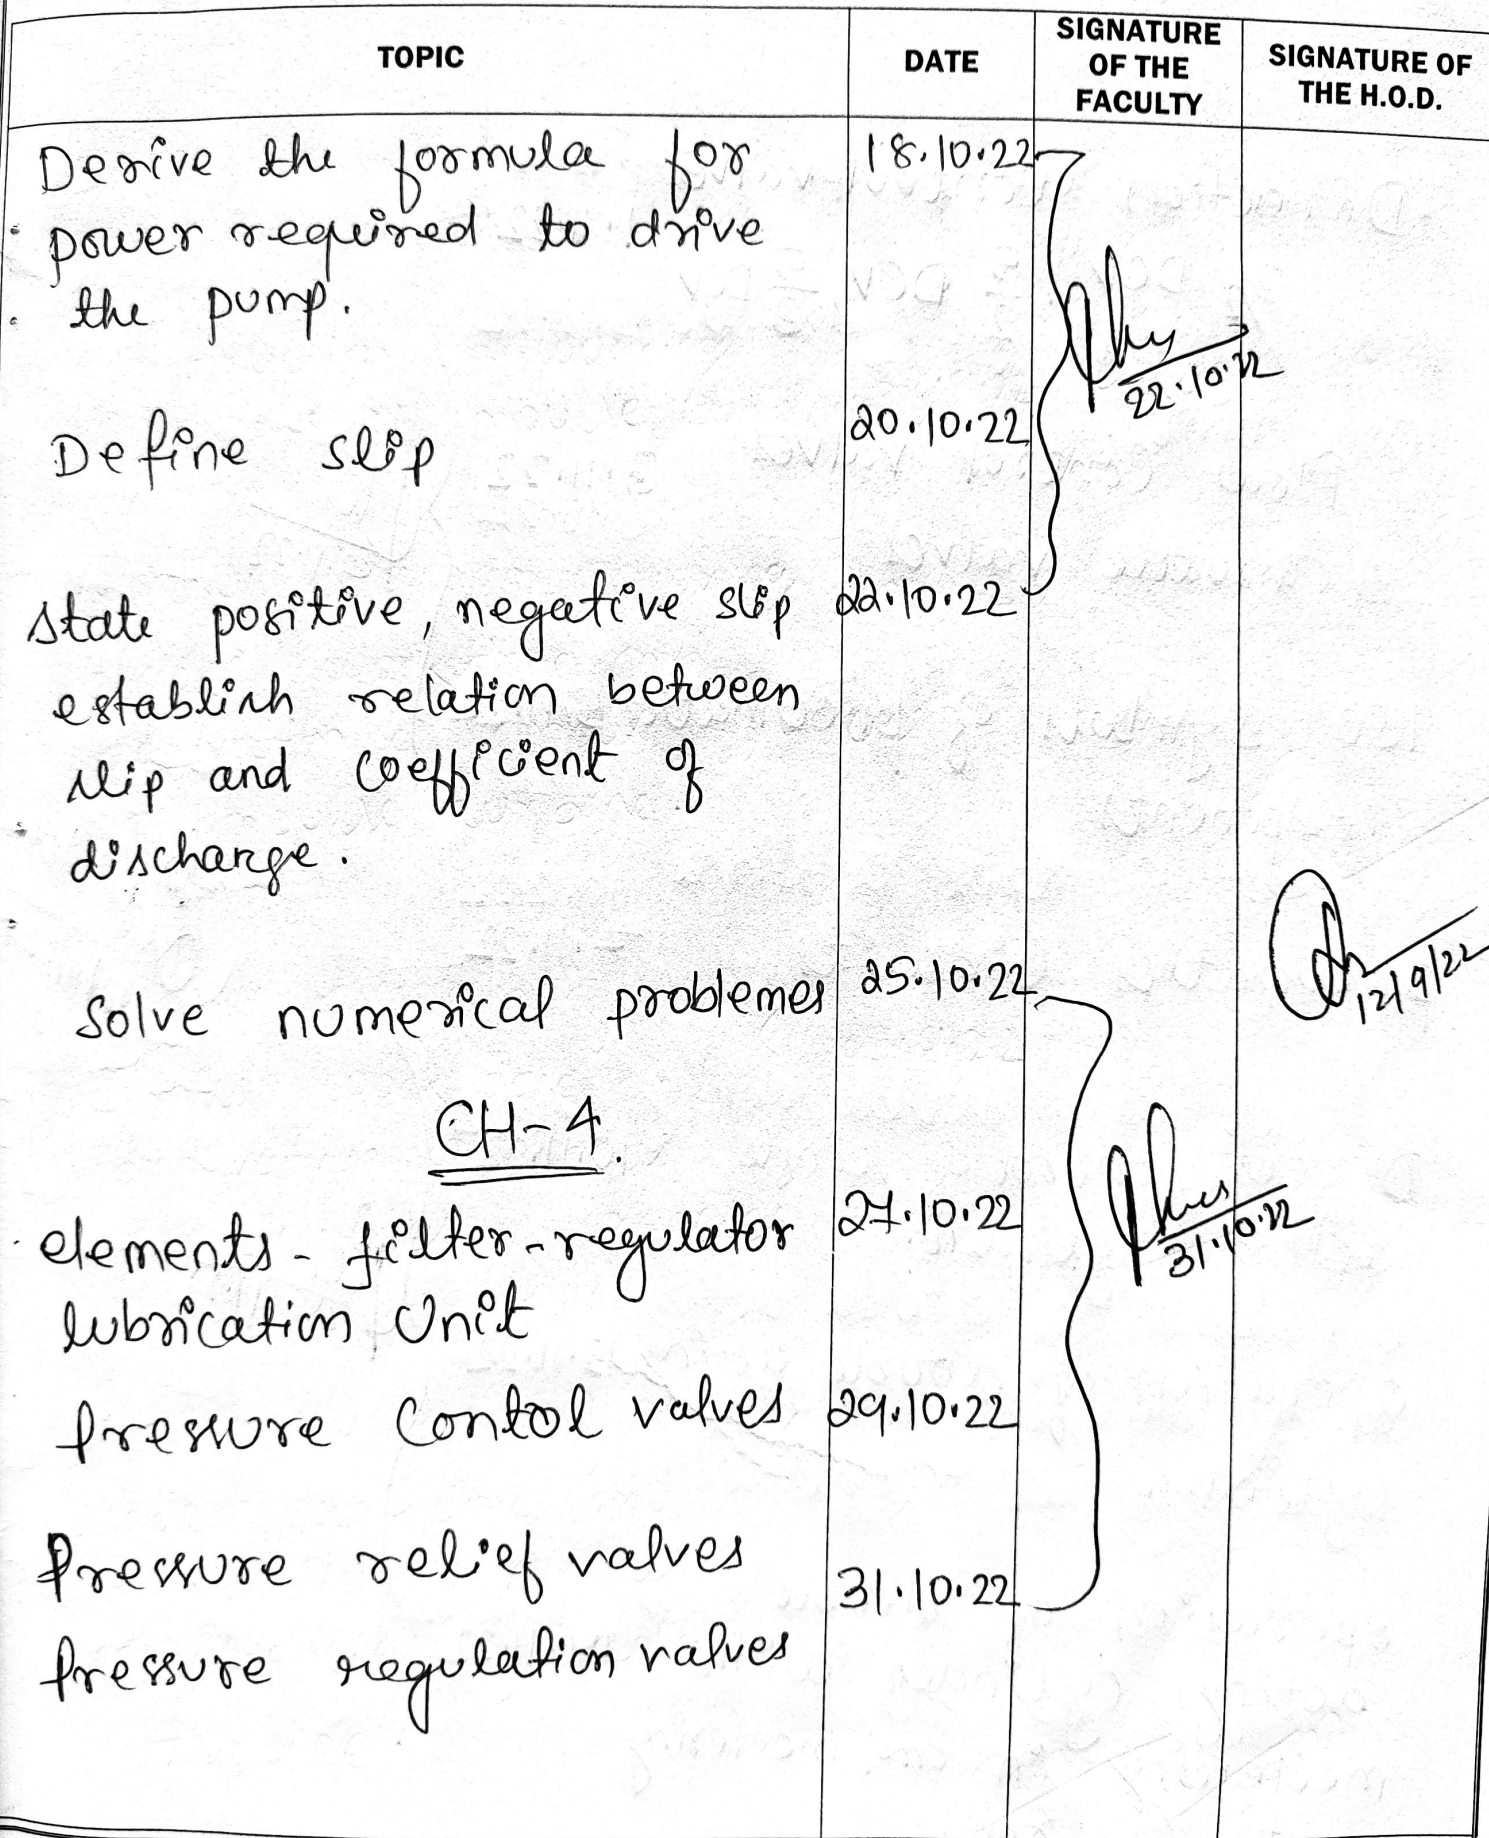 TOPIC DATE SIGNATURE OF THE FACULTY SIGNATURE OF THE H.O.D.
Derive the formula for 18.10.22
power required to drive
the pump.
22.10.22
Define slip 20.10.22
state positive, negative slip 22.10.22
establish relation between
slip and coefficient of
discharge.
12/9/22
Solve numerical problemes 25.10.22
CH-4.
elements - filter-regulator 27.10.22
31.10.22
lubrication Unit
Pressure Control valves 29.10.22
Pressure relief valves 31.10.22
Pressure regulation valves